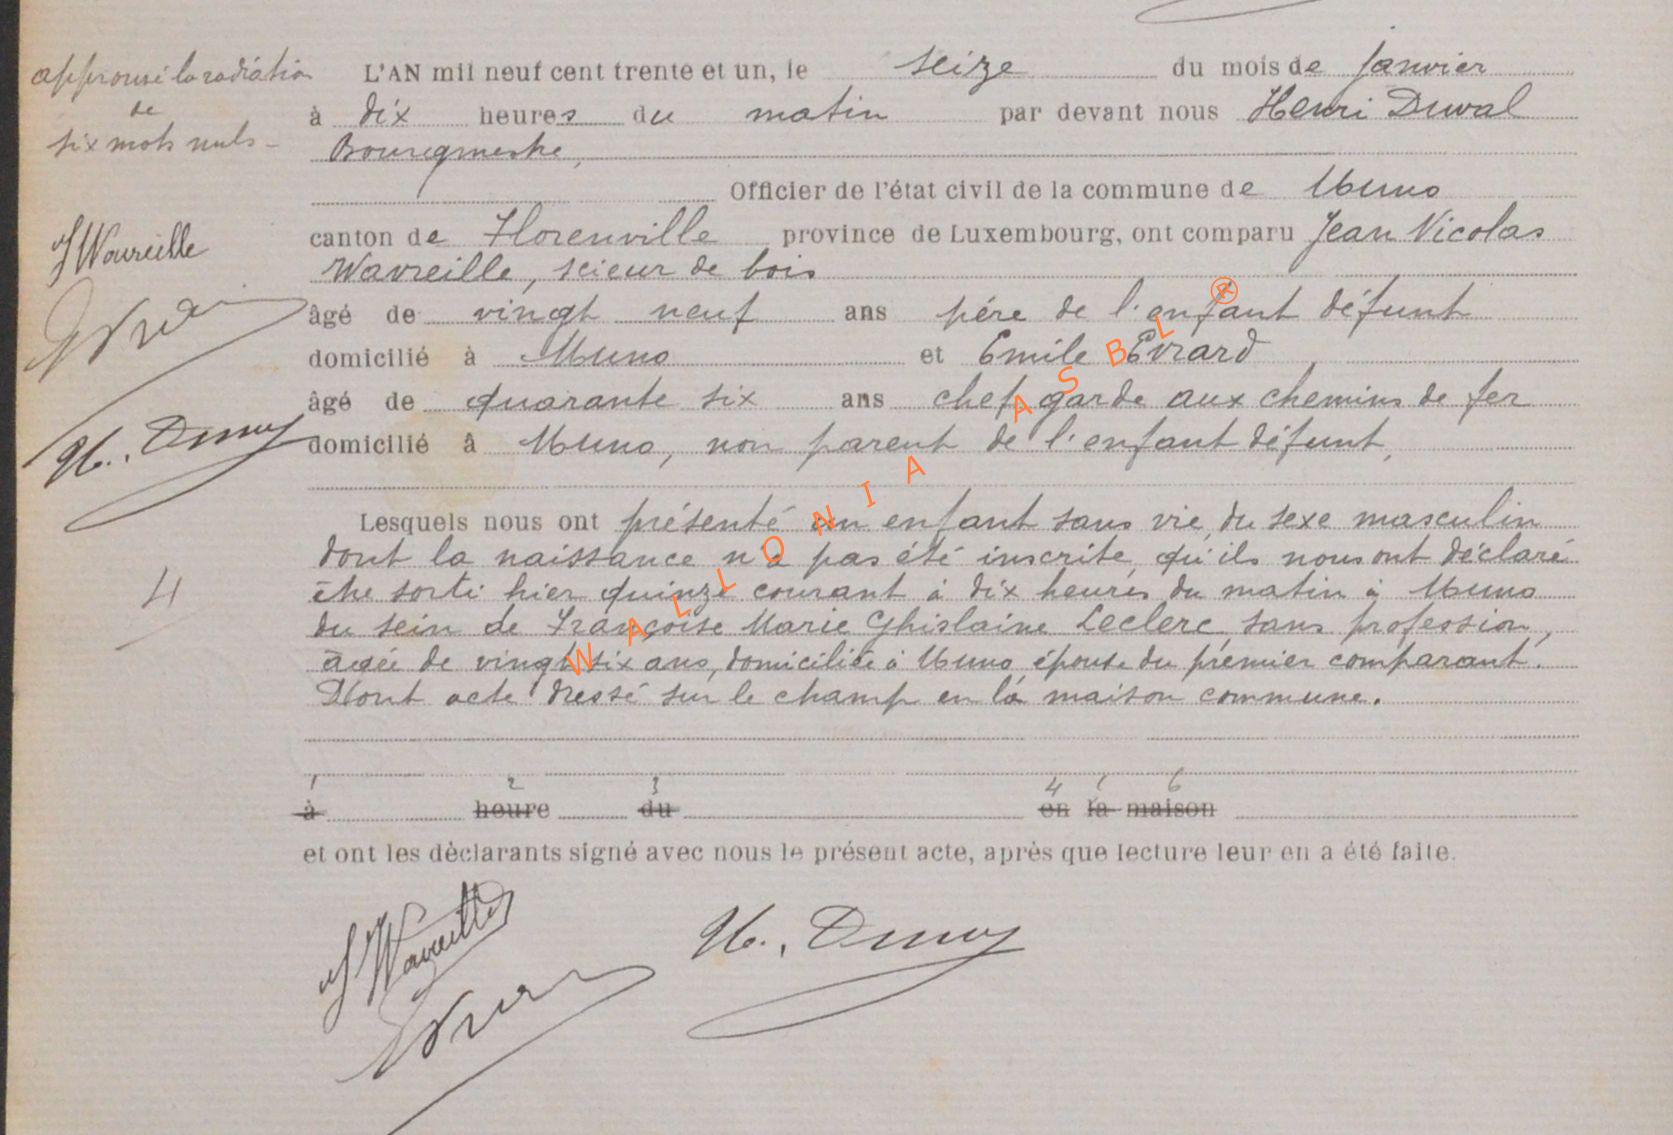 approuvé la radiation
de
six mots nuls -
J Wavreille
H. Duval
4
L'AN mil neuf cent trente et un, le seize du mois de janvier
à dix heures du matin par devant nous Henri Duval
Bourgmestre,
Officier de l'état civil de la commune de Muno
canton de Florenville province de Luxembourg, ont comparu Jean Nicolas
Wavreille, scieur de bois
âgé de vingt neuf ans père de l'enfant défunt
domicilié à Muno et Emile Evrard
âgé de quarante six ans chef garde aux chemins de fer
domicilié à Muno, non parent de l'enfant défunt,
Lesquels nous ont présenté un enfant sans vie, du sexe masculin
dont la naissance n'a pas été inscrite, qu'ils nous ont déclaré
être sorti hier quinze courant à dix heures du matin à Muno
du sein de Françoise Marie Ghislaine Leclerc, sans profession,
âgée de vingt six ans, domiciliée à Muno, épouse du premier comparant.
Dont acte dressé sur le champ en la maison commune.
1 2 3 4 6
à heure du en la maison
et ont les déclarants signé avec nous le présent acte, après que lecture leur en a été faite.
J Wavreille
H. Duval
WALLONIA ASBL ®